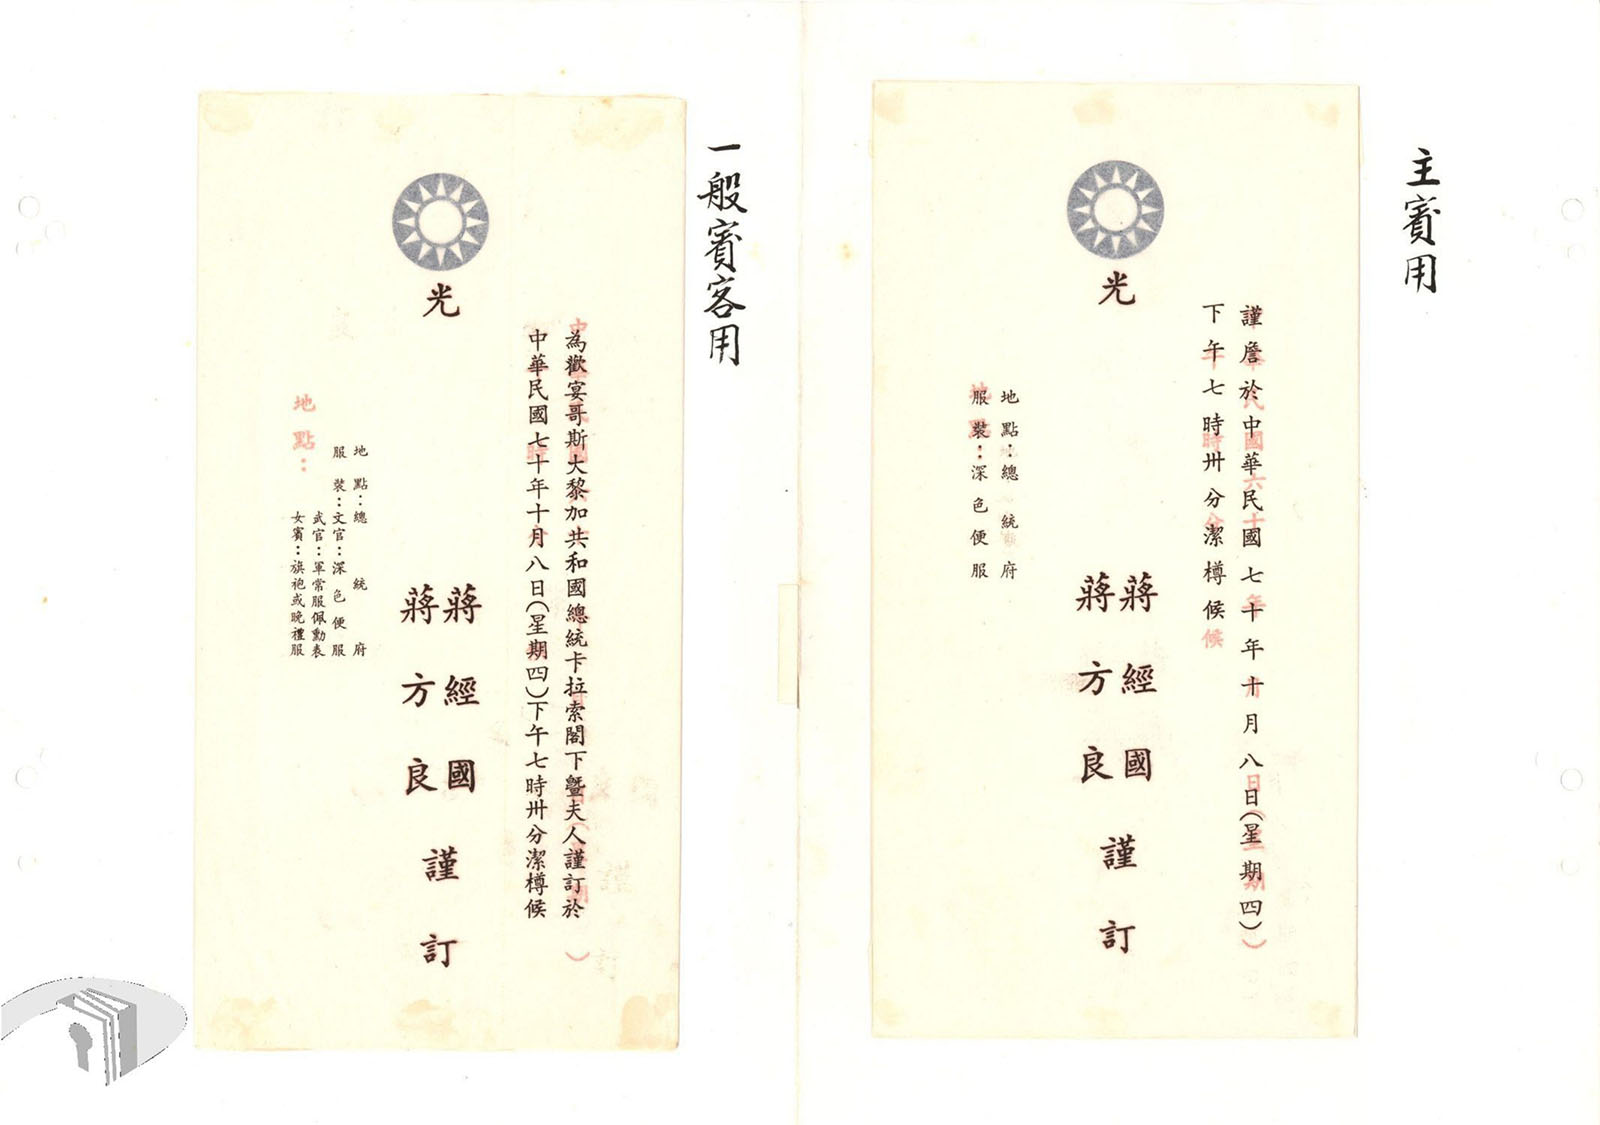 主賓用
謹詹於中華民國七十年十月八日(星期四)
下午七時卅分潔樽候
光
蔣經國
蔣方良
謹訂
地點:總統府
服裝:深色便服
一般賓客用
為歡宴哥斯大黎加共和國總統卡拉索閣下暨夫人謹訂於
中華民國七十年十月八日(星期四)下午七時卅分潔樽候
光
蔣經國
蔣方良
謹訂
地點:總統府
服裝:文官:深色便服
武官:軍常服佩勳表
女賓:旗袍或晚禮服
地點: